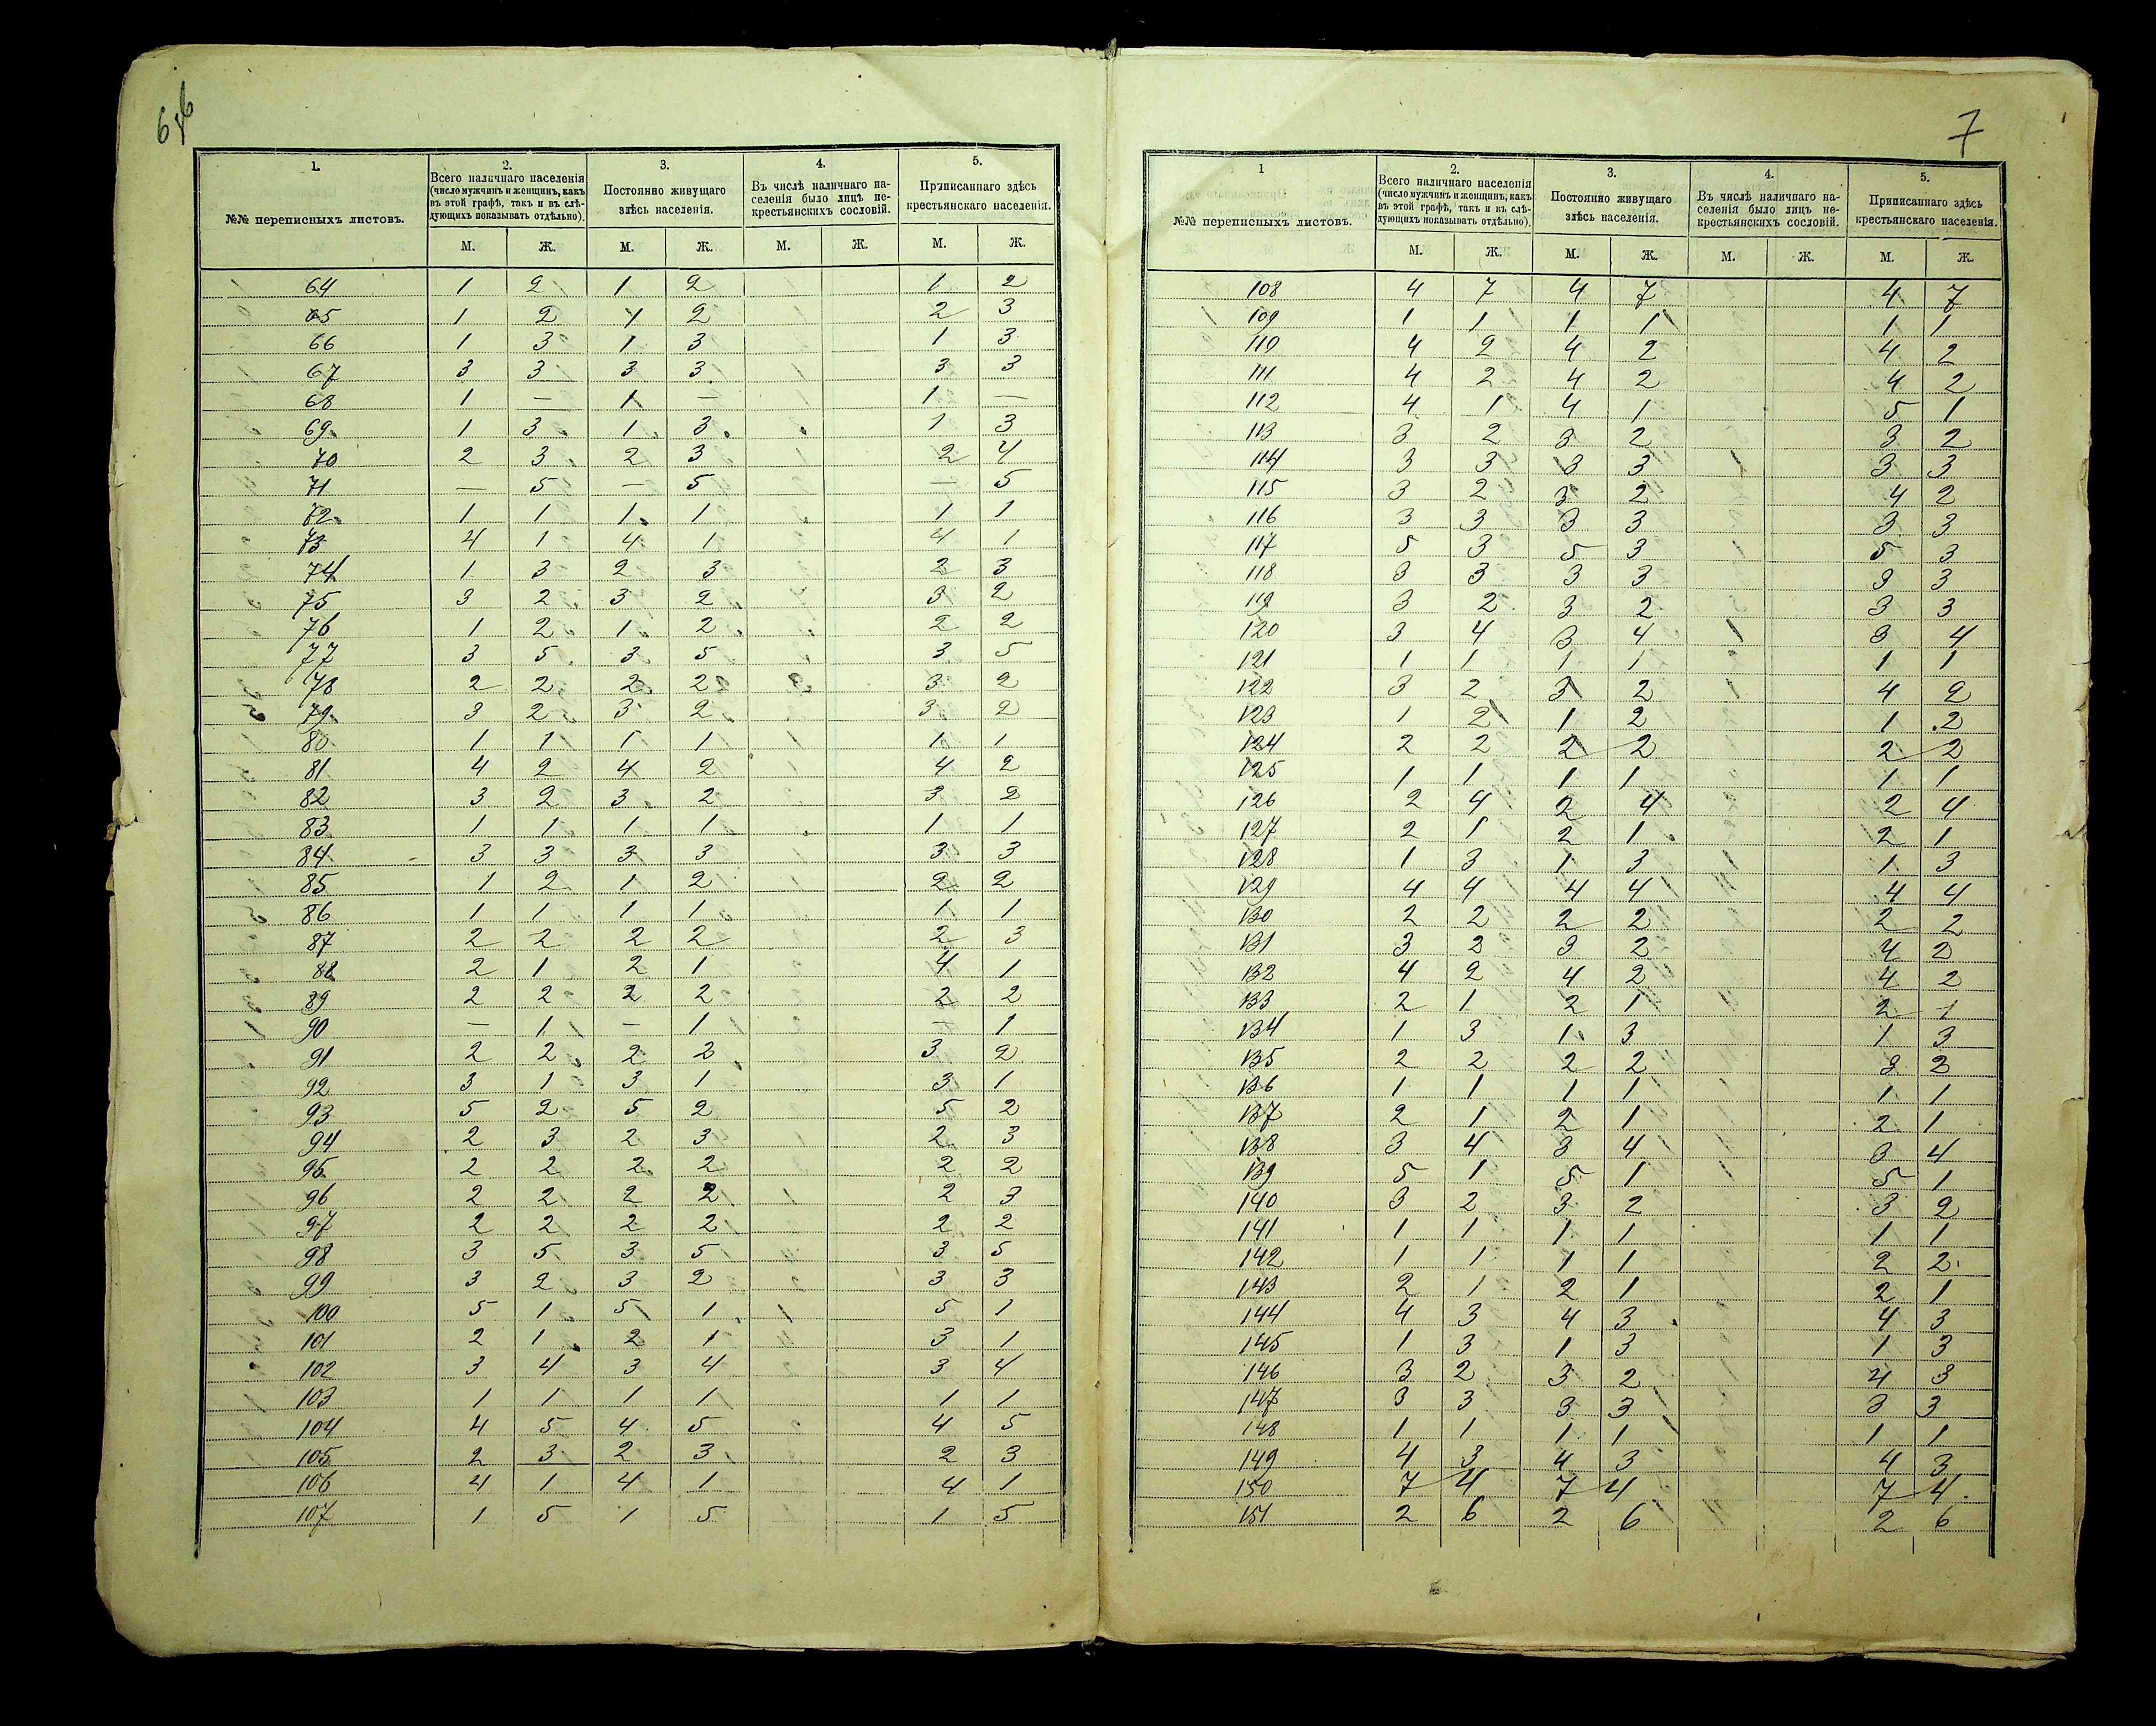 6об
1. 2. 3. 4. 5.
№№ переписныхъ листовъ. Всего наличнаго населенія (число мужчинъ и женщинъ, какъ въ этой графѣ, такъ и въ слѣдующихъ показывать отдѣльно). Постоянно живущаго здѣсь населенія. Въ числѣ наличнаго населенія было лицъ некрестьянскихъ сословій. Приписаннаго здѣсь крестьянскаго населенія.
М. Ж. М. Ж. М. Ж. М. Ж.
64 1 2 1 2 1 2
65 1 2 1 2 2 3
66 1 3 1 3 1 3
67 3 3 3 3 3 3
68 1 — 1 — 1 —
69 1 3 1 3 1 3
70 2 3 2 3 2 4
71 — 5 — 5 — 5
72 1 1 1 1 1 1
73 4 1 4 1 4 1
74 1 3 2 3 2 3
75 3 2 3 2 3 2
76 1 2 1 2 2 2
77 3 5 3 5 3 5
78 2 2 2 2 3 2
79 3 2 3 2 3 2
80 1 1 1 1 1 1
81 4 2 4 2 4 2
82 3 2 3 2 3 2
83 1 1 1 1 1 1
84 3 3 3 3 3 3
85 1 2 1 2 2 2
86 1 1 1 1 1 1
87 2 2 2 2 2 3
88 2 1 2 1 4 1
89 2 2 2 2 2 2
90 — 1 — 1 — 1
91 2 2 2 2 3 2
92 3 1 3 1 3 1
93 5 2 5 2 5 2
94 2 3 2 3 2 3
95 2 2 2 2 2 2
96 2 2 2 2 2 3
97 2 2 2 2 2 2
98 3 5 3 5 3 5
99 3 2 3 2 3 3
100 5 1 5 1 5 1
101 2 1 2 1 3 1
102 3 4 3 4 3 4
103 1 1 1 1 1 1
104 4 5 4 5 4 5
105 2 3 2 3 2 3
106 4 1 4 1 4 1
107 1 5 1 5 1 5
7
1 2. 3. 4. 5.
№№ переписныхъ листовъ. Всего наличнаго населенія (число мужчинъ и женщинъ, какъ въ этой графѣ, такъ и въ слѣдующихъ показывать отдѣльно). Постоянно живущаго здѣсь населенія. Въ числѣ наличнаго населенія было лицъ некрестьянскихъ сословій. Приписаннаго здѣсь крестьянскаго населенія.
М. Ж. М. Ж. М. Ж. М. Ж.
108 4 7 4 7 4 7
109 1 1 1 1 1 1
110 4 2 4 2 4 2
111 4 2 4 2 4 2
112 4 1 4 1 5 1
113 3 2 3 2 3 2
114 3 3 3 3 3 3
115 3 2 3 2 4 2
116 3 3 3 3 3 3
117 5 3 5 3 5 3
118 3 3 3 3 3 3
119 3 2 3 2 3 3
120 3 4 3 4 3 4
121 1 1 1 1 1 1
122 3 2 3 2 4 2
123 1 2 1 2 1 2
124 2 2 2 2 2 2
125 1 1 1 1 1 1
126 2 4 2 4 2 4
127 2 1 2 1 2 1
128 1 3 1 3 1 3
129 4 4 4 4 4 4
130 2 2 2 2 2 2
131 3 2 3 2 4 2
132 4 2 4 2 4 2
133 2 1 2 1 2 1
134 1 3 1 3 1 3
135 2 2 2 2 3 2
136 1 1 1 1 1 1
137 2 1 2 1 2 1
138 3 4 3 4 3 4
139 5 1 5 1 5 1
140 3 2 3 2 3 2
141 1 1 1 1 1 1
142 1 1 1 1 2 2
143 2 1 2 1 2 1
144 4 3 4 3 4 3
145 1 3 1 3 1 3
146 3 2 3 2 4 3
147 3 3 3 3 3 3
148 1 1 1 1 1 1
149 4 3 4 3 4 3
150 7 4 7 4 7 4
151 2 6 2 6 2 6